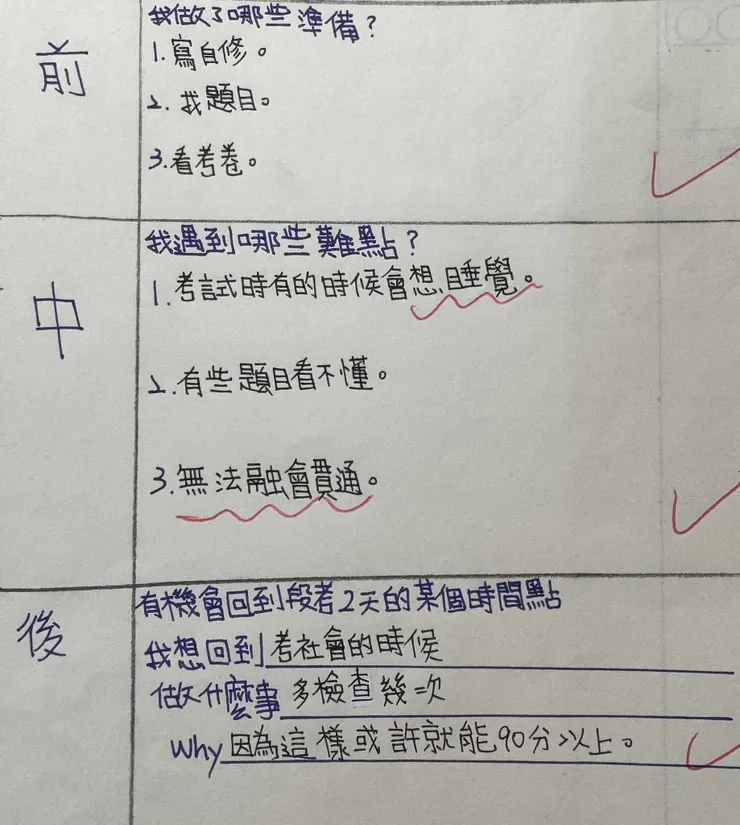 前
我做了哪些準備？
1. 寫自修。
2. 找題目。
3. 看考卷。
中
我遇到哪些難點？
1. 考試時有的時候會想睡覺。
2. 有些題目看不懂。
3. 無法融會貫通。
後
有機會回到段考2天的某個時間點
我想回到考社會的時候
做什麼事 多檢查幾次
Why 因為這樣或許就能90分以上。